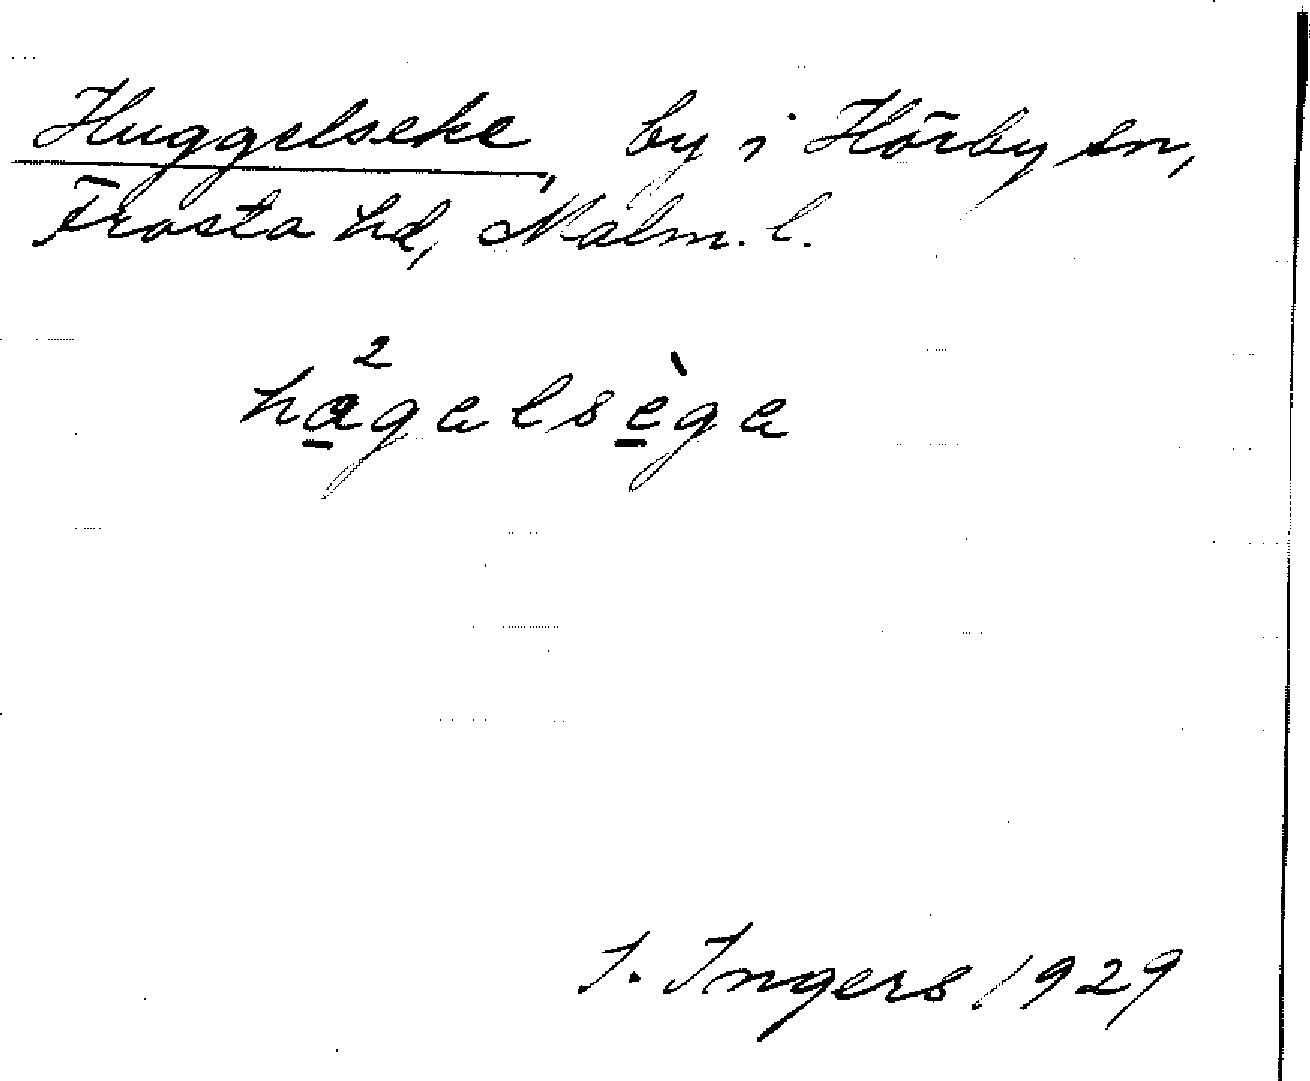 Huggelseke, by i Hörby sn,
Frosta hd, Malm. l.
ha̱²gelsè̱ge
I. Ingers 1929